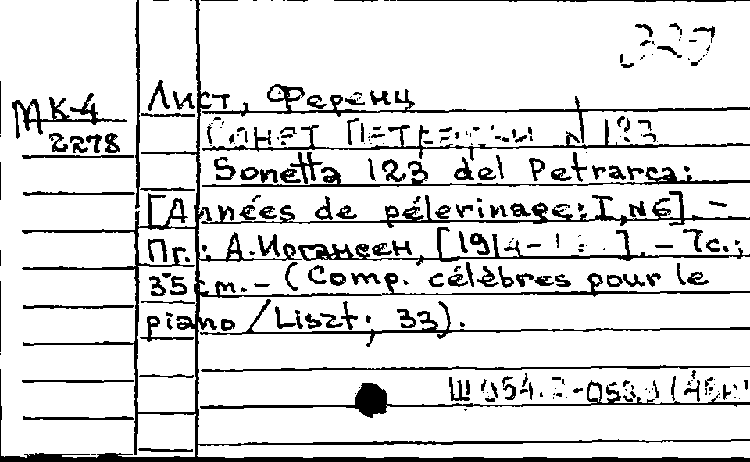 327
МК-4
2278
Лист, Ференц
Сонет Петрарки N 123
Sonetta 123 del Petrarca:
[Années de pélerinage: I, N6]. –
Пг.: А. Иогансен, [1914- ]. – 7с.;
35cm. – (Comp. célèbres pour le
piano / Liszt; 33).
Ш 054.